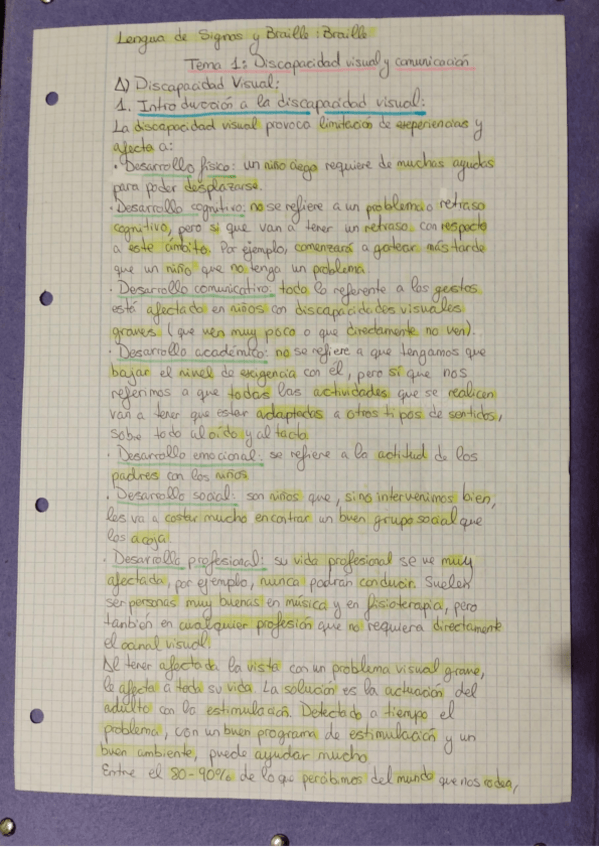 Lengua de Signos y Braille: Braille
Tema 1: Discapacidad visual y comunicación
A) Discapacidad Visual:
1. Introducción a la discapacidad visual:
La discapacidad visual provoca limitación de experiencias y
afecta a:
· Desarrollo físico: un niño ciego requiere de muchas ayudas
para poder desplazarse.
· Desarrollo cognitivo: no se refiere a un problema o retraso
cognitivo, pero sí que van a tener un retraso con respecto
a este ámbito. Por ejemplo, comenzará a gatear más tarde
que un niño que no tenga un problema.
· Desarrollo comunicativo: todo lo referente a los gestos
está afectado en niños con discapacidades visuales
graves (que ven muy poco o que directamente no ven).
· Desarrollo académico: no se refiere a que tengamos que
bajar el nivel de exigencia con él, pero sí que nos
referimos a que todas las actividades que se realicen
van a tener que estar adaptadas a otros tipos de sentidos,
sobre todo al oído y al tacto.
· Desarrollo emocional: se refiere a la actitud de los
padres con los niños.
· Desarrollo social: son niños que, si no intervenimos bien,
les va a costar mucho encontrar un buen grupo social que
los acoja.
· Desarrollo profesional: su vida profesional se ve muy
afectada, por ejemplo, nunca podrán conducir. Suelen
ser personas muy buenas en música y en fisioterapia, pero
también en cualquier profesión que no requiera directamente
el canal visual.
Al tener afectada la vista con un problema visual grave,
le afecta a toda su vida. La solución es la actuación del
adulto con la estimulación. Detectado a tiempo el
problema, con un buen programa de estimulación y un
buen ambiente, puede ayudar mucho.
Entre el 80-90% de lo que percibimos del mundo que nos rodea,